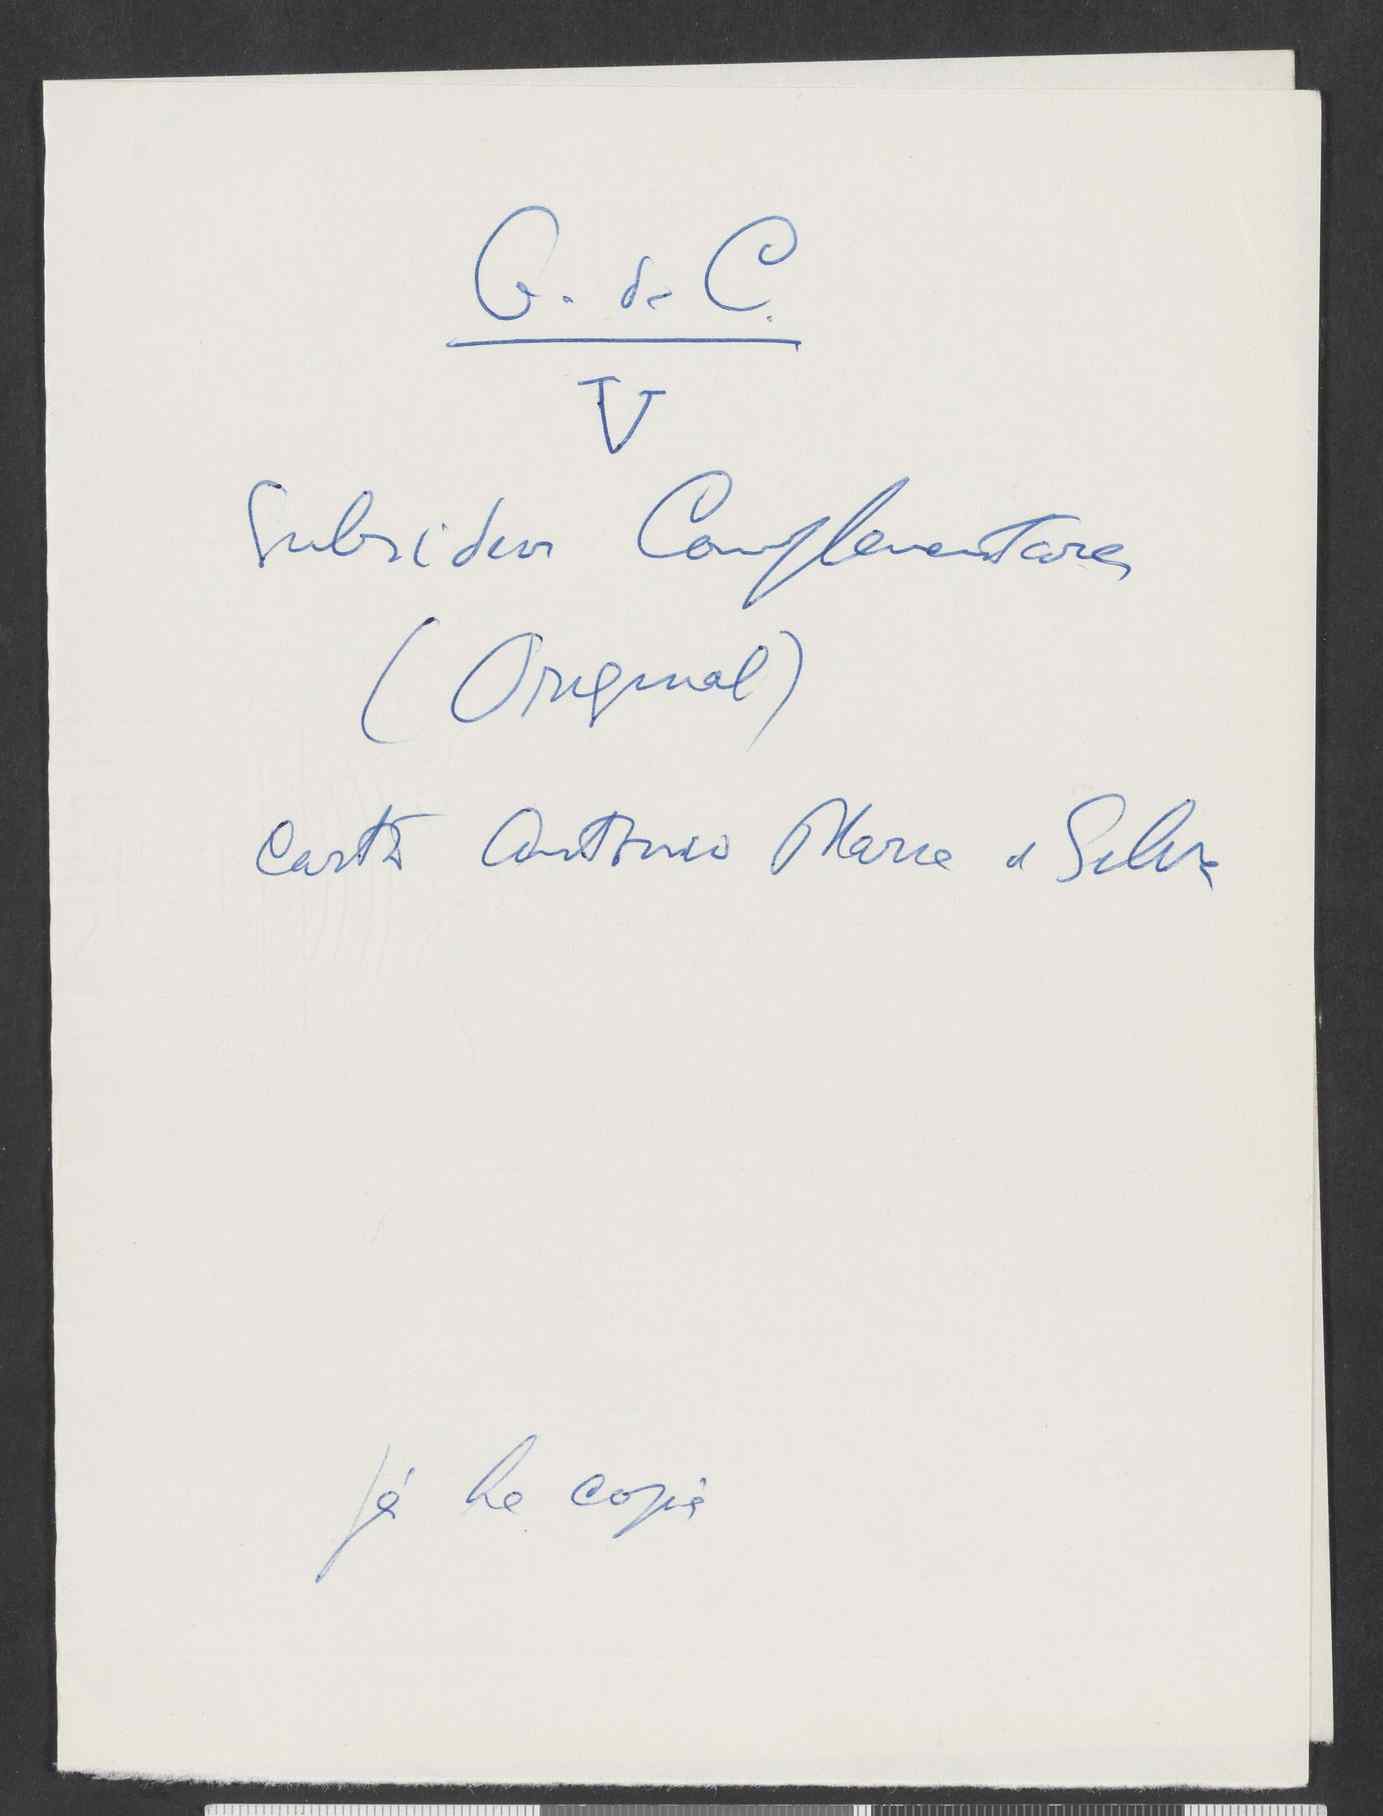 G. de C.
V
Subsidios Complementares
(Original)
Carta Antonio Maria da Silva
já ha copia